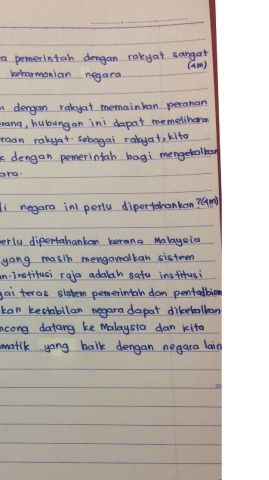 a pemerintah dengan rakyat sangat
keharmonian negara (4m)
n dengan rakyat memainkan peranan
erang, hubungan ini dapat memelihara
raan rakyat. sebagai rakyat, kita
k dengan pemerintah bagi mengekalkan
ara.
i negara ini perlu dipertahankan? (4m)
erlu dipertahankan kerana Malaysia
yang masih mengamalkan sistem
an. Institusi raja adalah satu institusi
gai teras sistem pemerintah dan pentadbiran
kan kestabilan negara dapat dikekalkan
ncong datang ke Malaysia dan kita
matik yang baik dengan negara lain